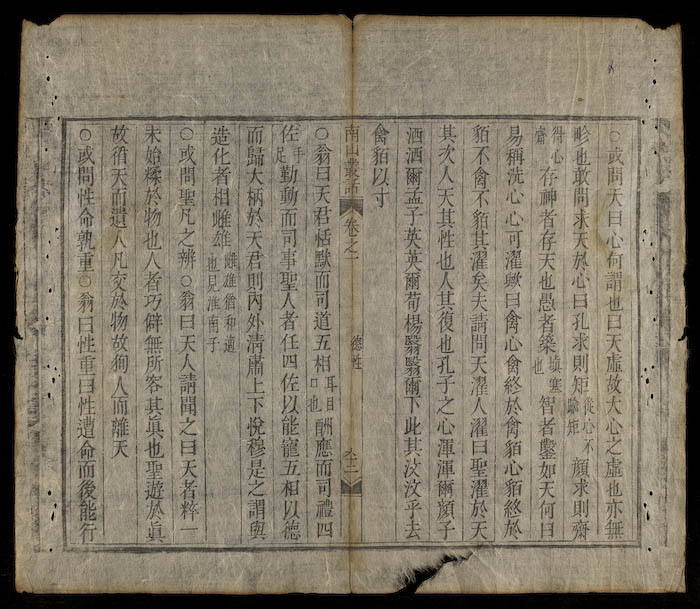 ○或問天曰心何謂也曰天虛故大心之虛也亦無
畛也敢問求天於心曰孔求則矩從心不踰矩顏求則齋
得心齋存神者存天也愚者築塡塞也智者鑿如天何曰
易稱洗心心可濯歟曰禽心禽終於禽貊心貊終於
貊不禽不貊其濯矣夫請問天濯人濯曰聖濯於天
其次人天其性也人其復也孔子之心渾渾爾顏子
洒洒爾孟子英英爾荀楊翳翳爾下此其汶汶乎去
禽貊以寸
南山叢話 卷之一 德性
○翁曰天君恬默而司道五相耳目口也酬應而司禮四
佐手足勤動而司事聖人者任四佐以能寵五相以德
而歸大柄於天君則內外清肅上下悅穆是之謂與
造化者相雌雄雌雄猶和適也見淮南子
○或問聖凡之辨○翁曰天人請聞之曰天者粹一
未始糅於物也人者巧僻無所容其眞也聖遊於眞
故循天而遺人凡交於物故徇人而離天
○或問性命孰重○翁曰性重曰性遺命而後能行